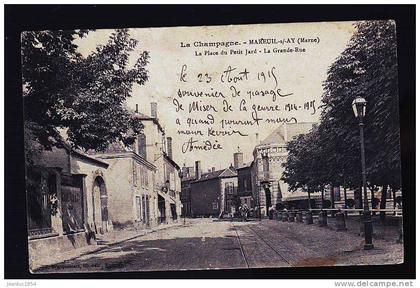 La Champagne. - MAREUIL-s/-AY (Marne)
La Place du Petit Jard - La Grande-Rue
le 23 Août 1915
souvenir de passage
de Misere de la guerre 1914-1915
a quand pourront nous
nous revoir
Amedée
©luquendar2854